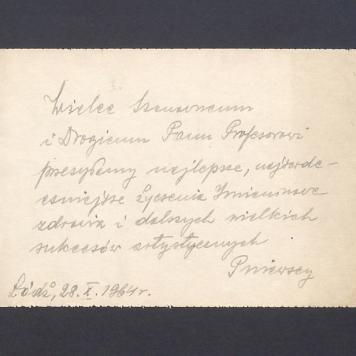 Wielce Szanownemu
i Drogiemu Panu Profesorowi
przesyłamy najlepsze, najserde-
czniejsze życzenia Imieninowe
zdrowia i dalszych wielkich
sukcesów artystycznych
Pniewscy
Łódź, 28.X.1964 r.